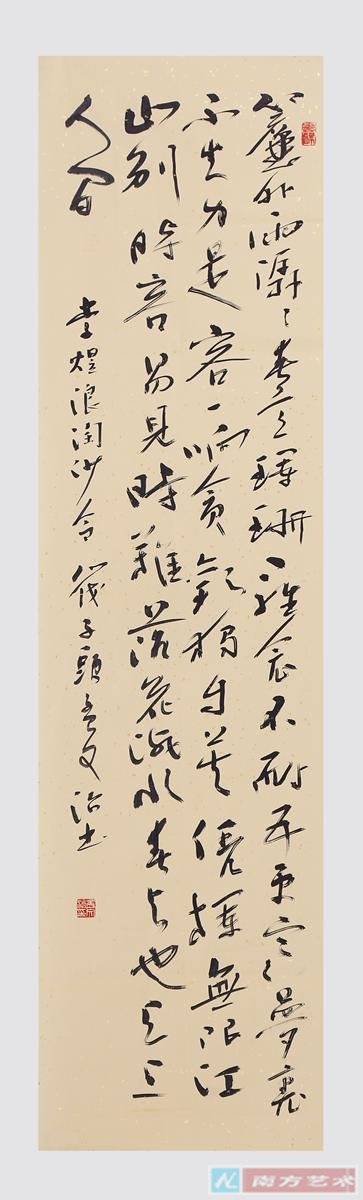 簾外雨潺々春意闌珊羅衾不耐五更寒夢裏
不知身是客一晌貪歡獨自莫憑欄無限江
山別時容易見時難落花流水春去也天上
人間
李煜浪淘沙令 筏子頭孟文治書
南方艺术